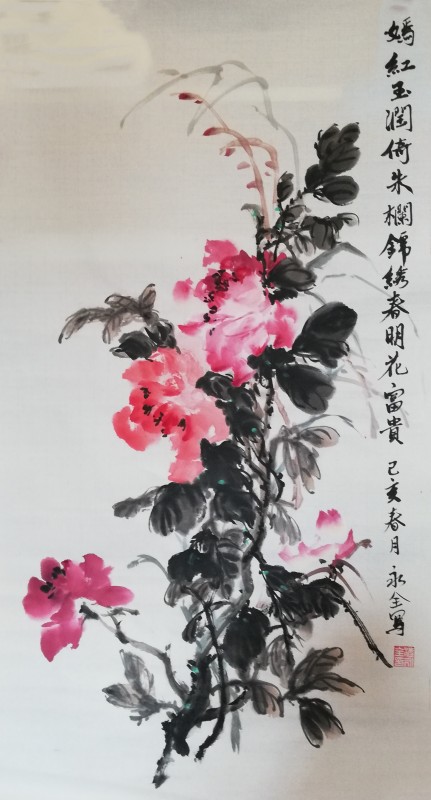 嫣红玉润倚朱欄錦綉春明花富貴 己亥春月 永全写